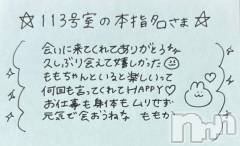 ☆113号室の本指名さま☆
会いに来てくれてありがとうね
久しぶり会えて嬉しかった
ももちゃんといると楽しいって
何回も言ってくれてHAPPY♡
お仕事も身体もムリせず
元気で会おうね ももか